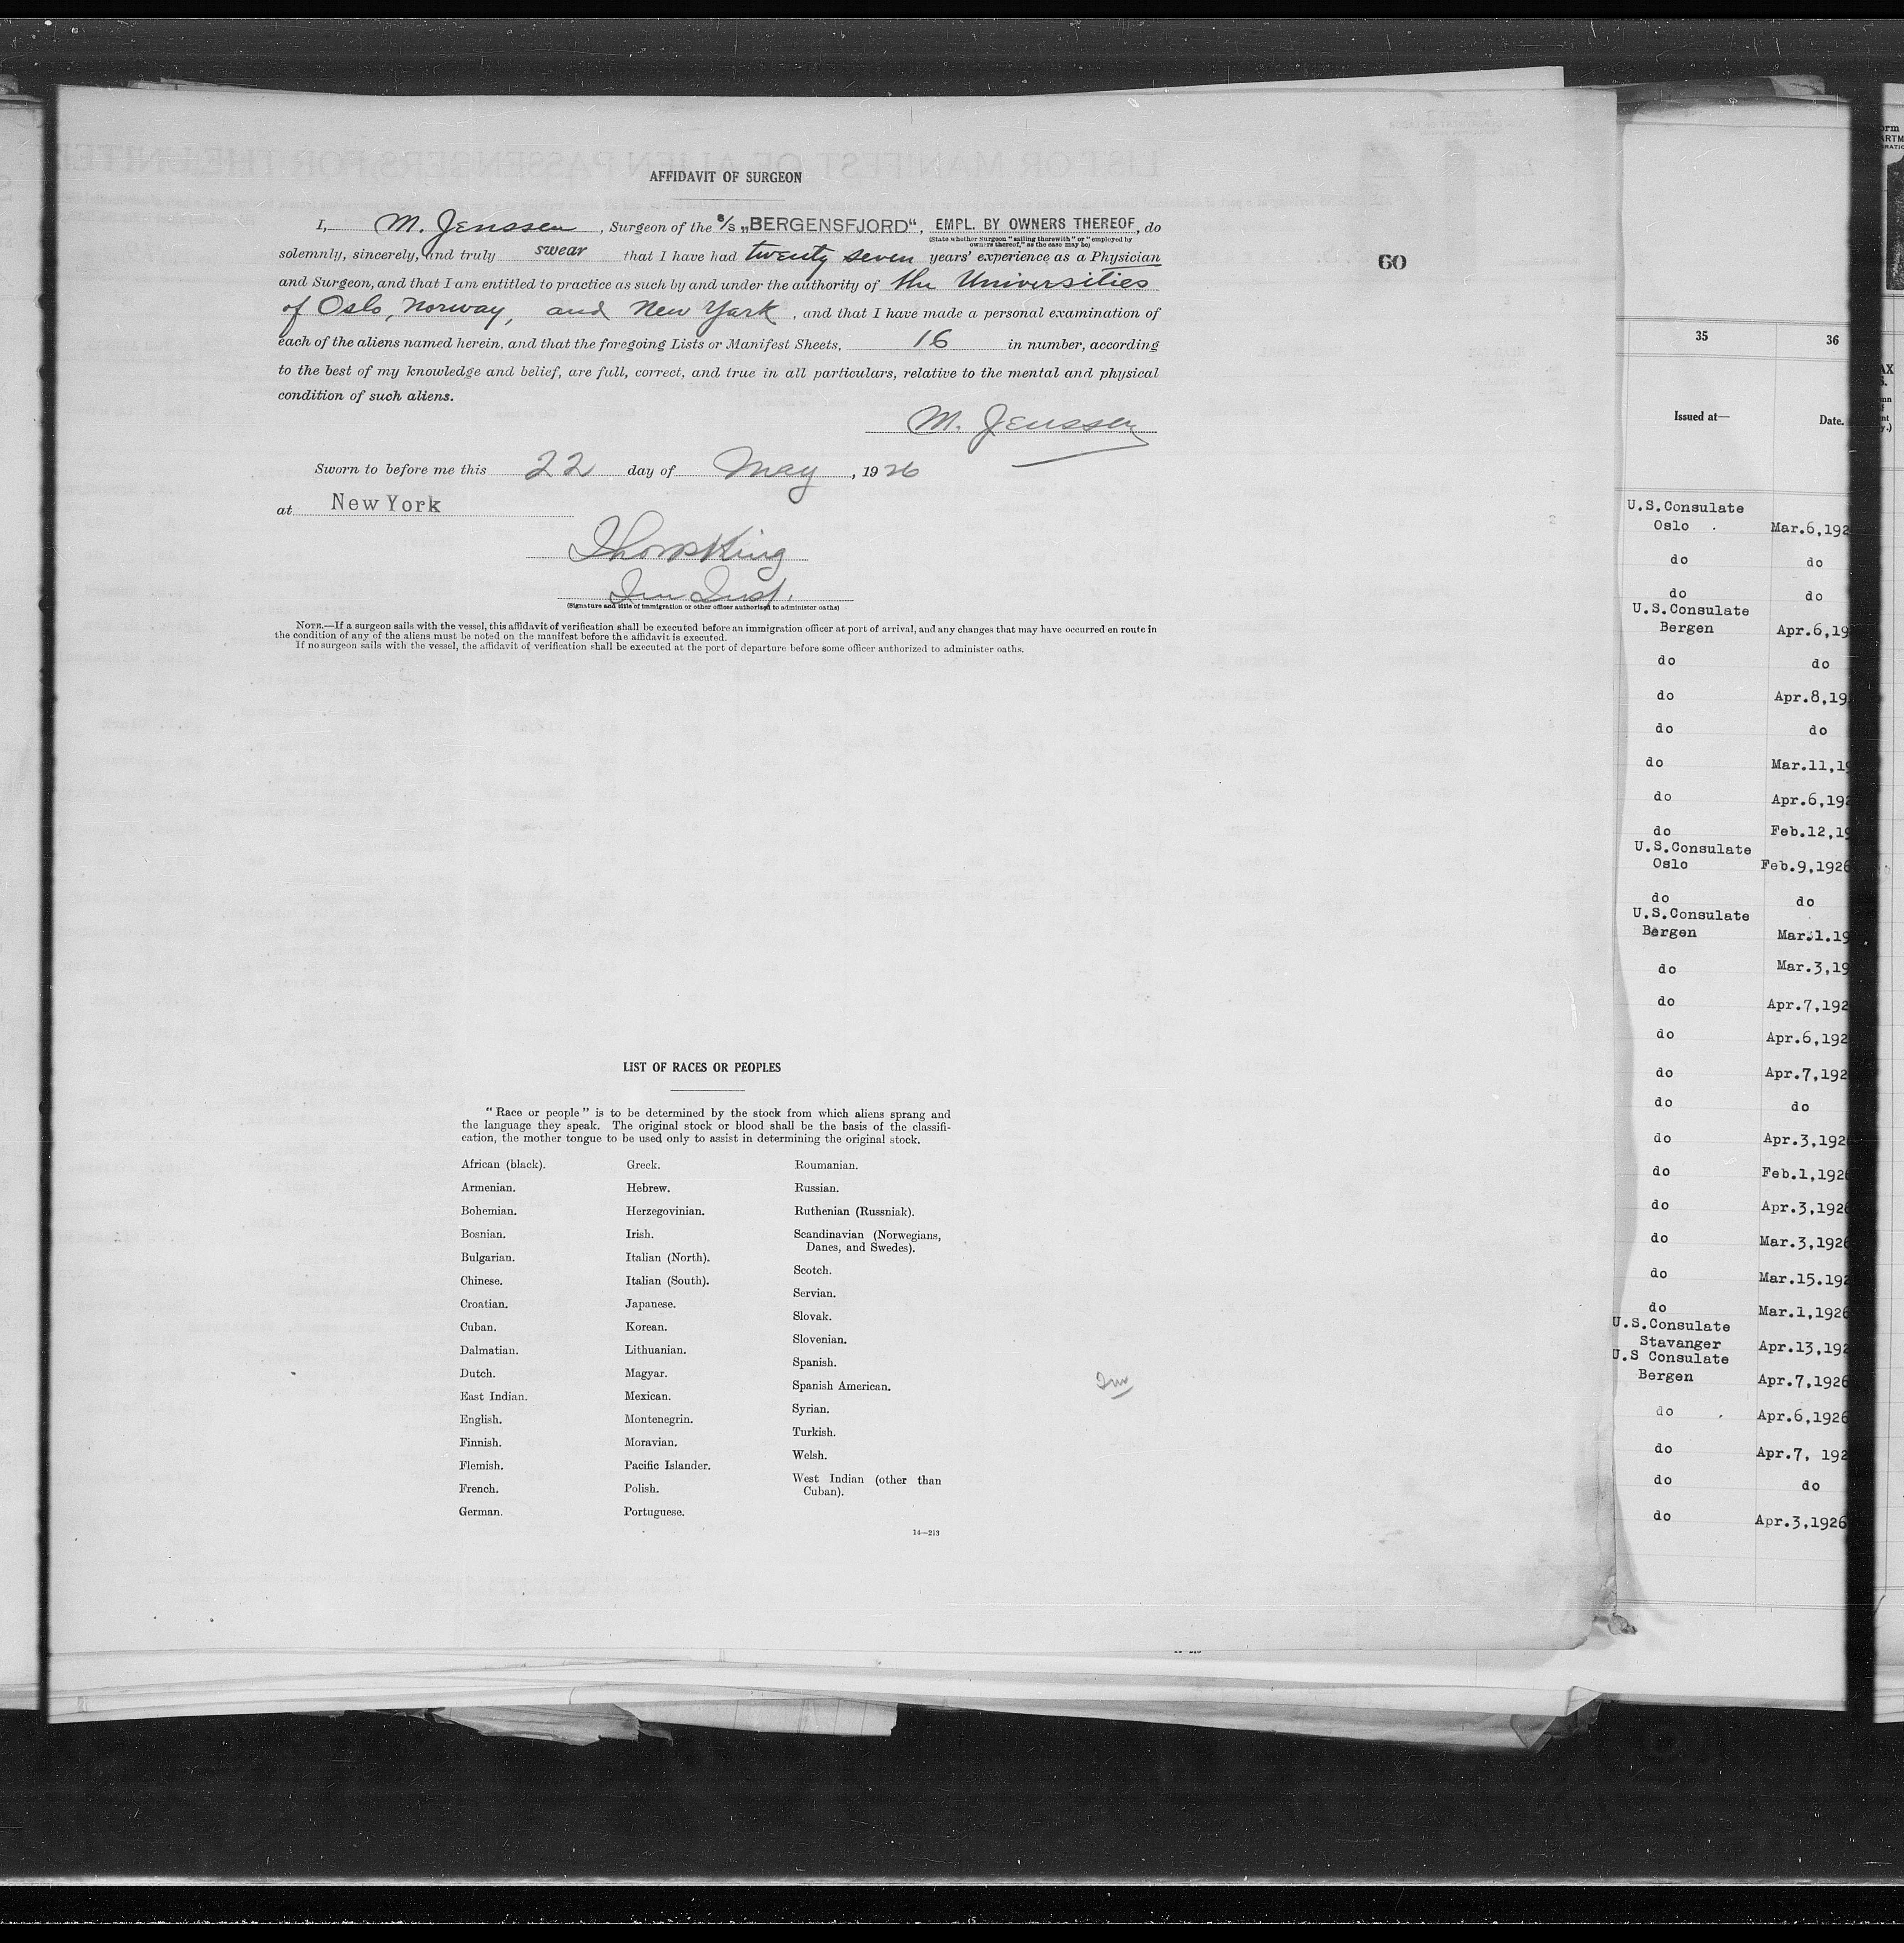 AFFIDAVIT OF SURGEON
I, M. Jenssen, Surgeon of the S/S „BERGENSFJORD“, EMPL. BY OWNERS THEREOF, do
(State whether Surgeon "sailing therewith" or "employed by
owners thereof," as the case may be)
solemnly, sincerely, and truly swear that I have had twenty seven years' experience as a Physician
and Surgeon, and that I am entitled to practice as such by and under the authority of the Universities
of Oslo, Norway, and New York, and that I have made a personal examination of
each of the aliens named herein, and that the foregoing Lists or Manifest Sheets, 16 in number, according
to the best of my knowledge and belief, are full, correct, and true in all particulars, relative to the mental and physical
condition of such aliens.
M. Jenssen
Sworn to before me this 22 day of May, 1926
at New York
(Signature and title of immigration or other officer authorized to administer oaths)
NOTE.—If a surgeon sails with the vessel, this affidavit of verification shall be executed before an immigration officer at port of arrival, and any changes that may have occurred en route in
the condition of any of the aliens must be noted on the manifest before the affidavit is executed.
If no surgeon sails with the vessel, the affidavit of verification shall be executed at the port of departure before some officer authorized to administer oaths.
60
LIST OF RACES OR PEOPLES
"Race or people" is to be determined by the stock from which aliens sprang and
the language they speak. The original stock or blood shall be the basis of the classifi-
cation, the mother tongue to be used only to assist in determining the original stock.
African (black).
Armenian.
Bohemian.
Bosnian.
Bulgarian.
Chinese.
Croatian.
Cuban.
Dalmatian.
Dutch.
East Indian.
English.
Finnish.
Flemish.
French.
German.
Greek.
Hebrew.
Herzegovinian.
Irish.
Italian (North).
Italian (South).
Japanese.
Korean.
Lithuanian.
Magyar.
Mexican.
Montenegrin.
Moravian.
Pacific Islander.
Polish.
Portuguese.
Roumanian.
Russian.
Ruthenian (Russniak).
Scandinavian (Norwegians,
Danes, and Swedes).
Scotch.
Servian.
Slovak.
Slovenian.
Spanish.
Spanish American.
Syrian.
Turkish.
Welsh.
West Indian (other than
Cuban).
14—213
35 36
Issued at— Date.
U.S.Consulate
Oslo Mar.6,192
do do
do do
U.S.Consulate
Bergen Apr.6,19
do do
do Apr.8,19
do do
do Mar.11,19
do Apr.6,192
do Feb.12,19
U.S.Consulate
Oslo Feb.9,1926
do do
U.S.Consulate
Bergen Mar.1.19
do Mar.3,19
do Apr.7,192
do Apr.6,192
do Apr.7,192
do do
do Apr.3,192
do Feb.1,1926
do Apr.3,1926
do Mar.3,1926
do Mar.15.192
do Mar.1,1926
U.S.Consulate
Stavanger Apr.13,192
U.S Consulate
Bergen Apr.7,1926
do Apr.6,1926
do Apr.7, 192
do do
do Apr.3,1926